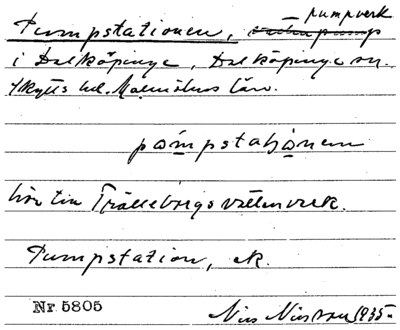 Pumpstationen, pumpverk
i Dalköpinge, Dalköpinge sn.
Skytts hd. Malmöhus län.
pɷmpstaʃonen
hör till Trälleborgs vattenverk.
Pumpstation, ek.
Nr 5805 Nils Nilsson 1935.